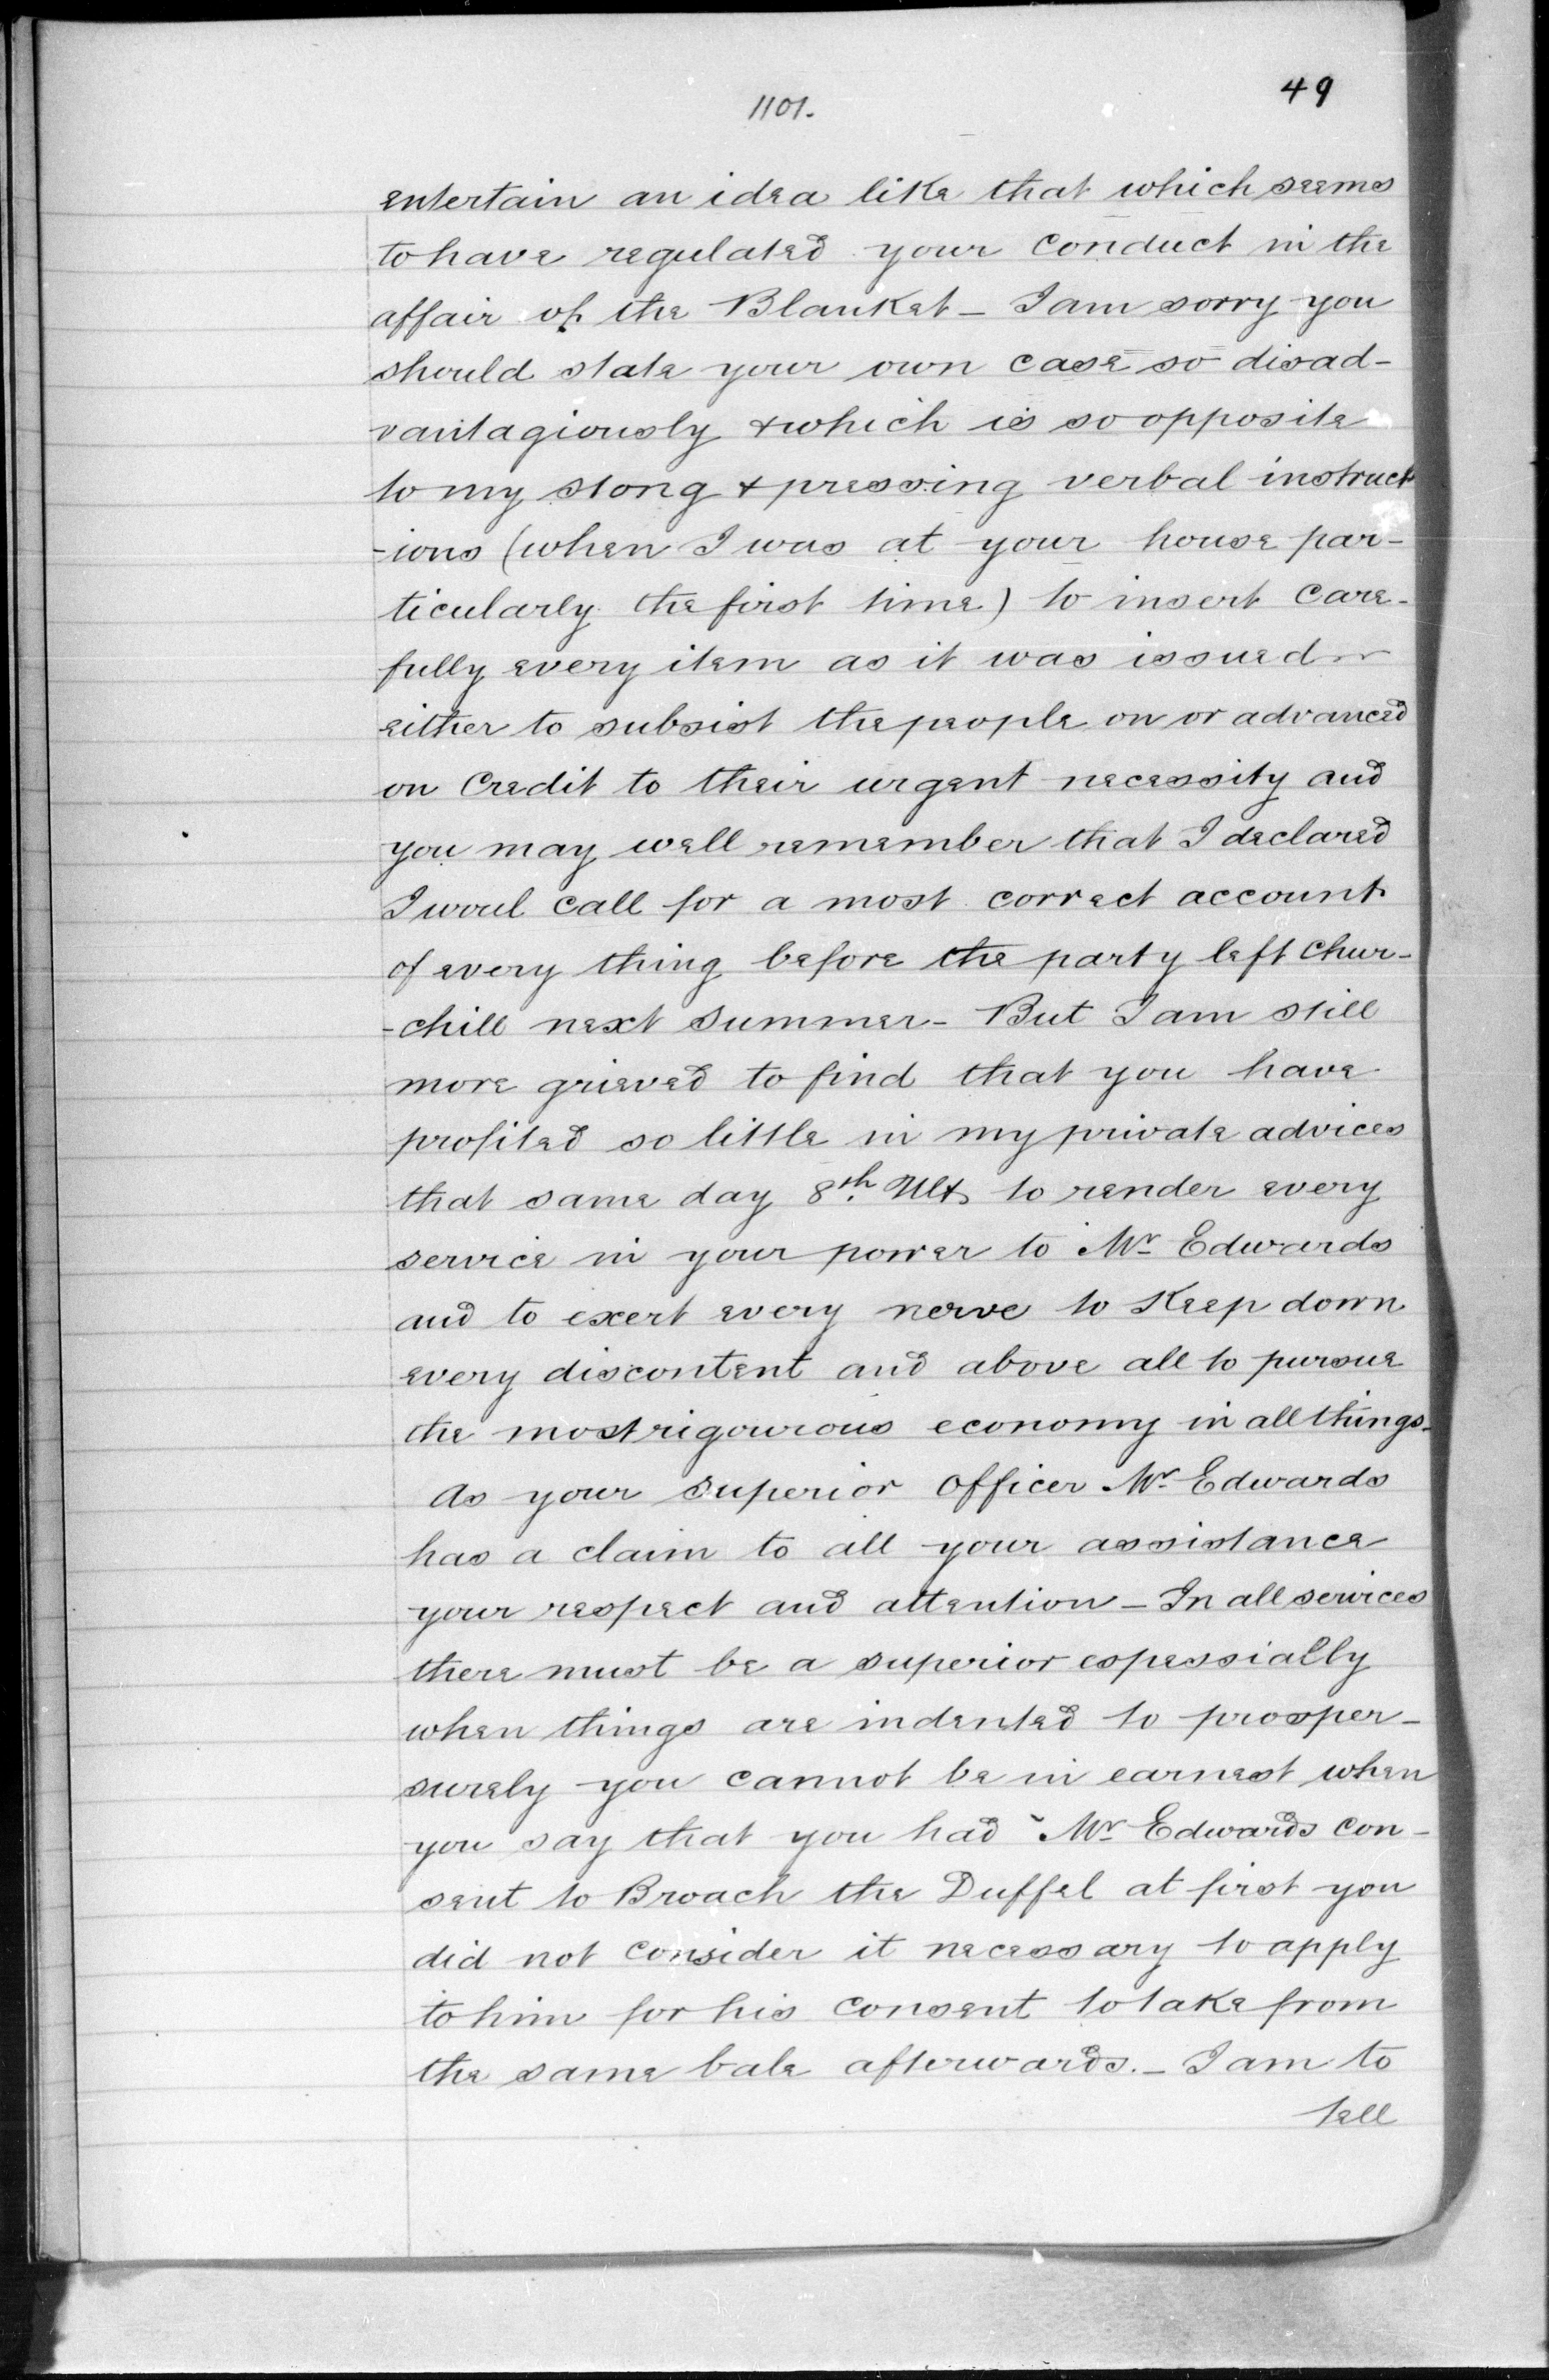 49
1101.
entertain an idea like that which seems
to have regulated your conduct in the
affair of the Blanket - I am sorry you
should state your own case so disad-
vantagiously & which is so opposite
to my stong & pressing verbal instruct
-ions (when I was at your house par-
ticularly the first time) to insert Care-
fully every item as it was issued
either to subsist the people on or advanced
on Credit to their urgent necessity and
you may well remember that I declared
I woul call for a most correct account
of every thing before the party left Chur-
-chill next Summer - But I am still
more grieved to find that you have
profited so little in my private advices
that same day 8th Ult to render every
service in your power to Mr Edwards
and to exert every nerve to Keep down
every discontent and above all to pursue
the most rigourous economy in all things -
As your superior Officer Mr Edwards
has a claim to all your assistance
your respect and attention - In all services
there must be a superior espessially
when things are indented to prosper -
surely you cannot be in earnest when
you say that you had Mr Edwards con-
sent to Broach the Duffel at first you
did not consider it necessary to apply
to him for his consent to take from
the same bale afterwards. - I am to
tell